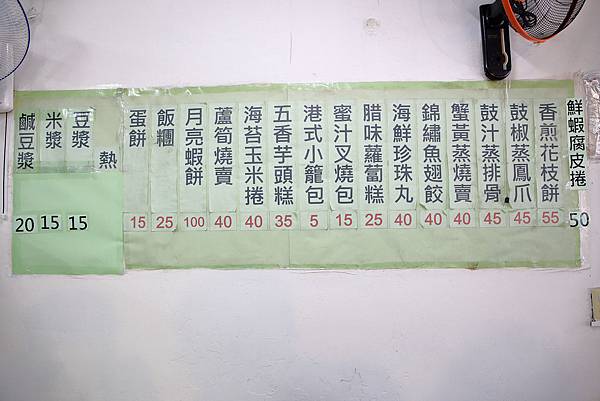 鮮蝦腐皮捲 50
香煎花枝餅 55
鼓椒蒸鳳爪 45
鼓汁蒸排骨 45
蟹黃蒸燒賣 40
錦繡魚翅餃 40
海鮮珍珠丸 40
腊味蘿蔔糕 25
蜜汁叉燒包 15
港式小籠包 5
五香芋頭糕 35
海苔玉米捲 40
蘆筍燒賣 40
月亮蝦餅 100
飯糰 25
蛋餅 15
熱
豆漿 15
米漿 15
鹹豆漿 20